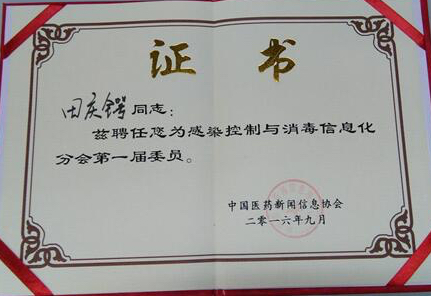 证书
田庆锷同志：
兹聘任您为感染控制与消毒信息化
分会第一届委员。
中国医药新闻信息协会
二零一六年九月